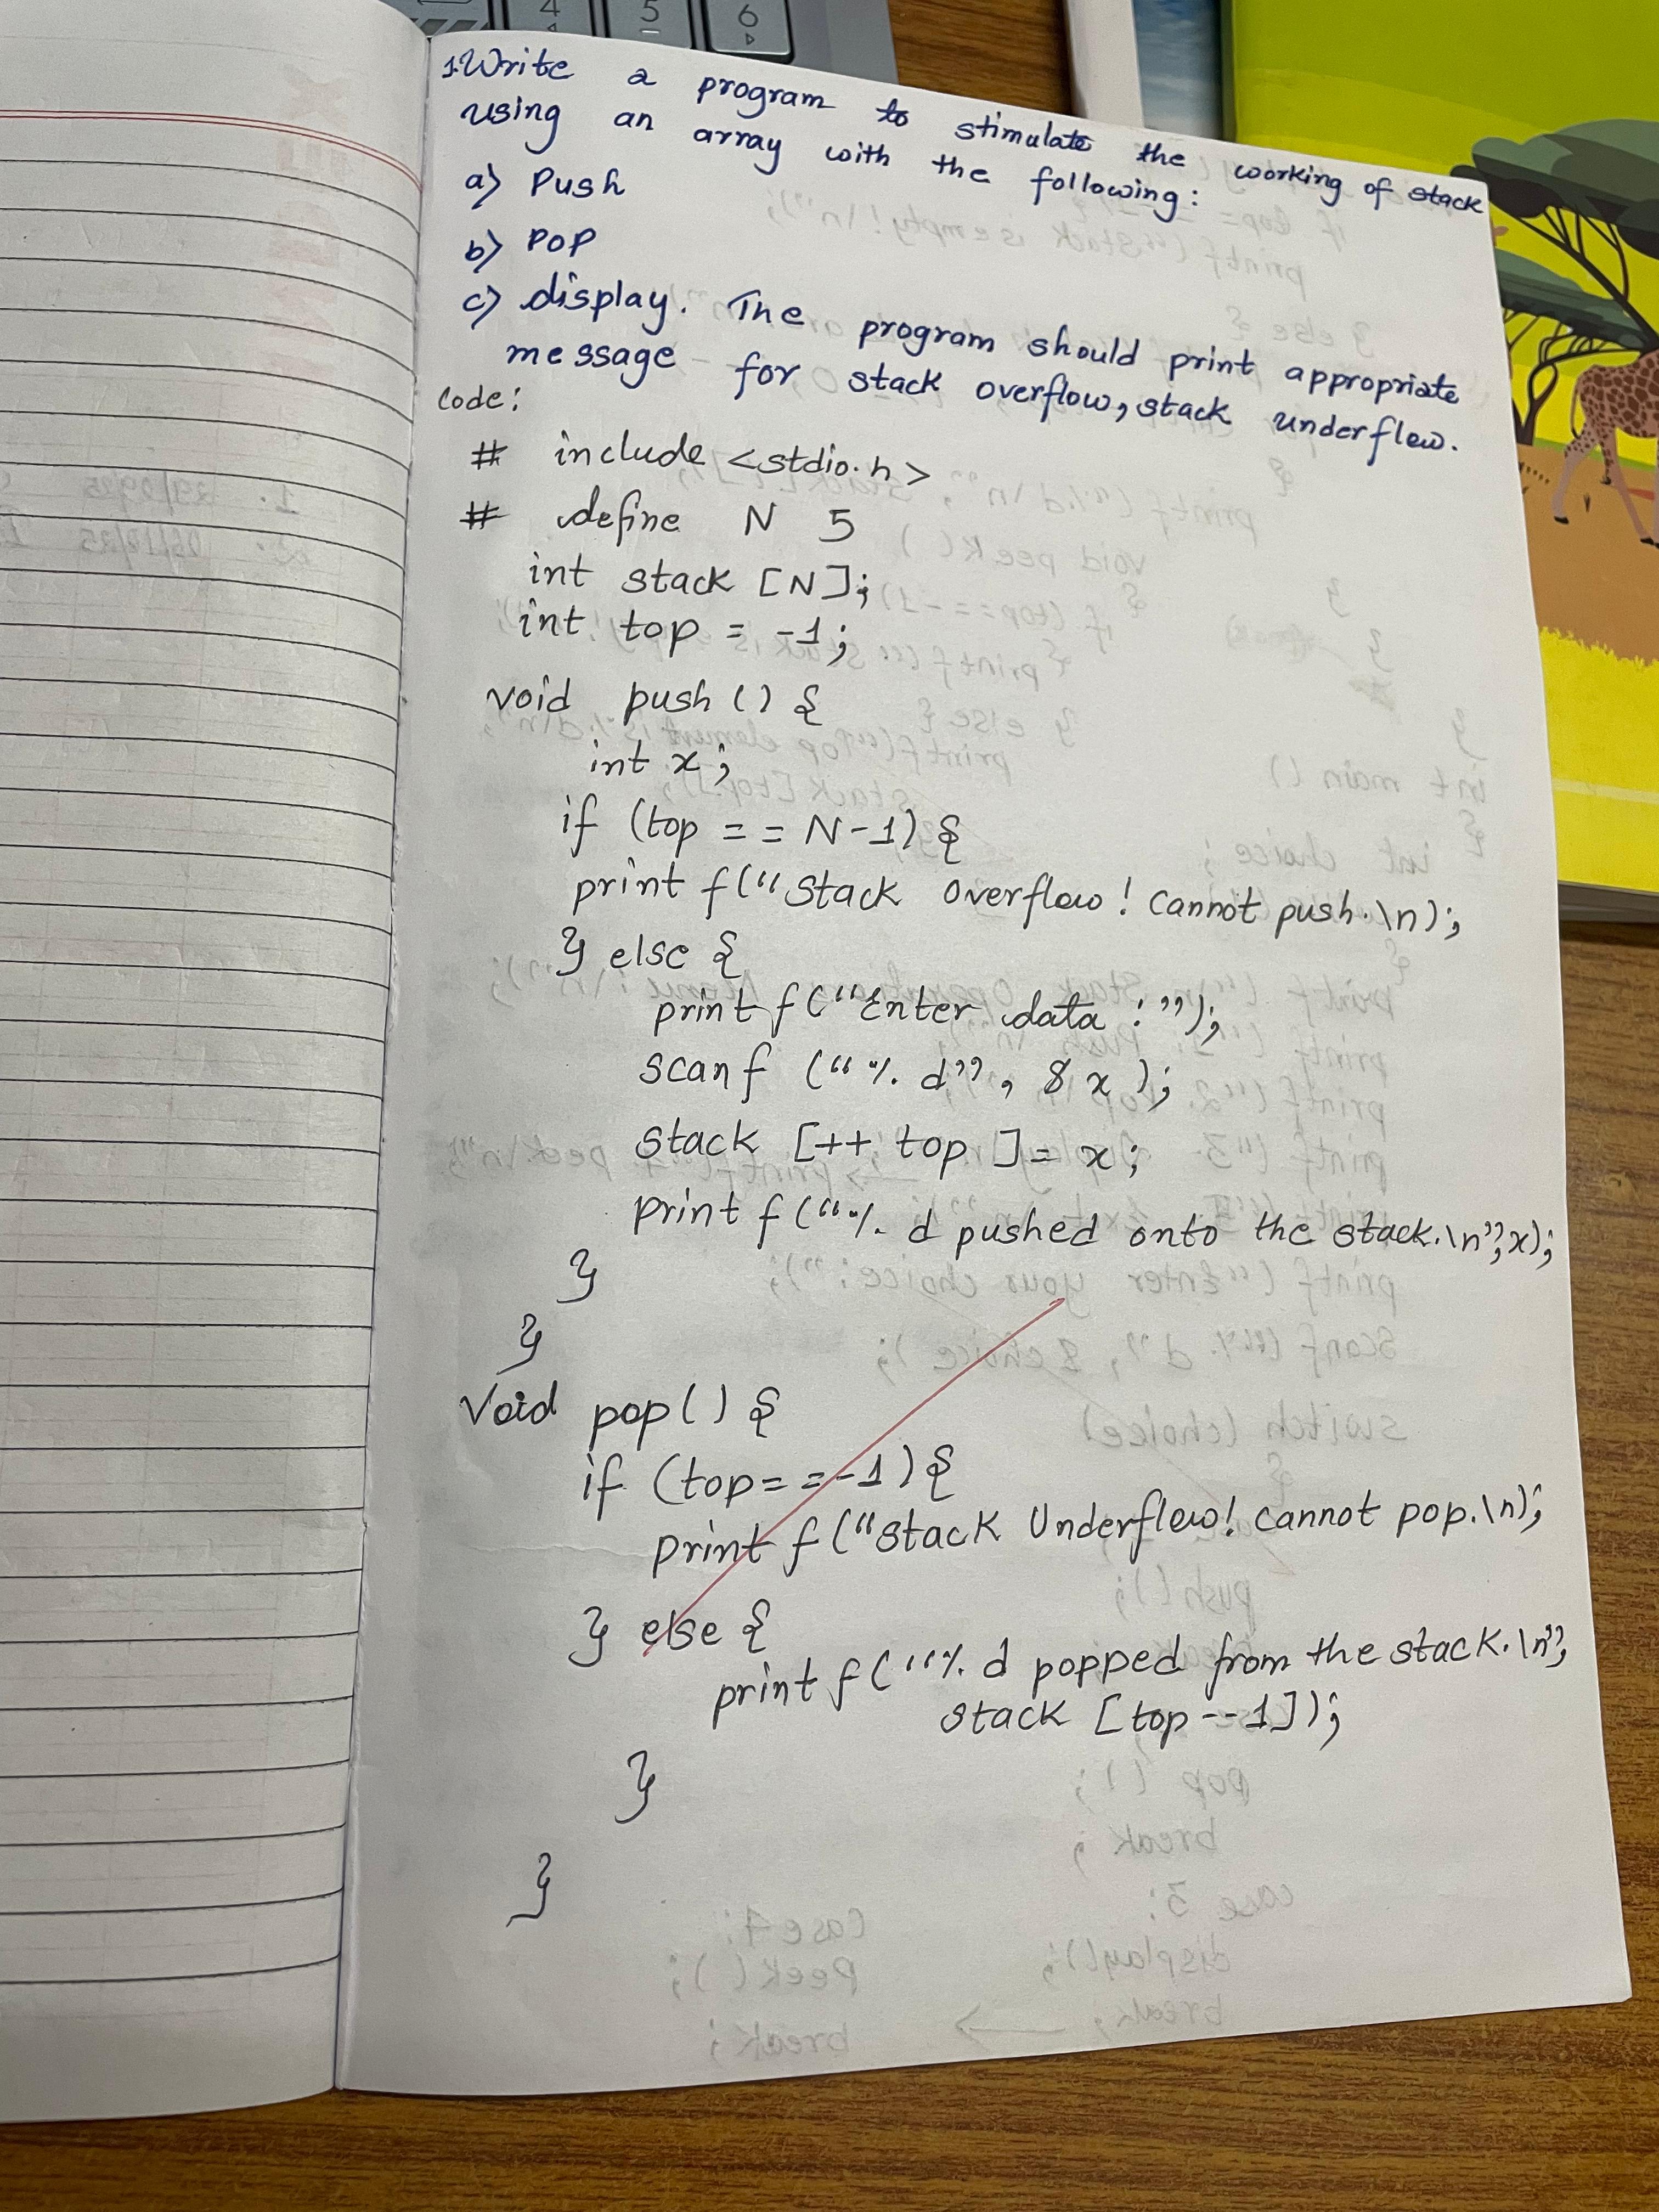 4 5 6
1. Write a program to stimulate the working of stack
using an array with the following:
a) Push
b) POP
c) display. The program should print appropriate
message for stack overflow, stack underflew.
Code:
# include <stdio.h>
# define N 5
int stack [N];
int top = -1;
void push () {
int x;
if (top == N-1) {
print f("Stack overflow! cannot push.\n);
} else {
print f("Enter data :");
scanf ("% d", & x );
stack [++ top ] = x;
print f("% d pushed onto the stack.\n", x);
}
}
Void pop() {
if (top==-1) {
print f("stack Underflew! cannot pop.\n);
} else {
print f("% d popped from the stack.\n",
stack [top--1]);
}
}